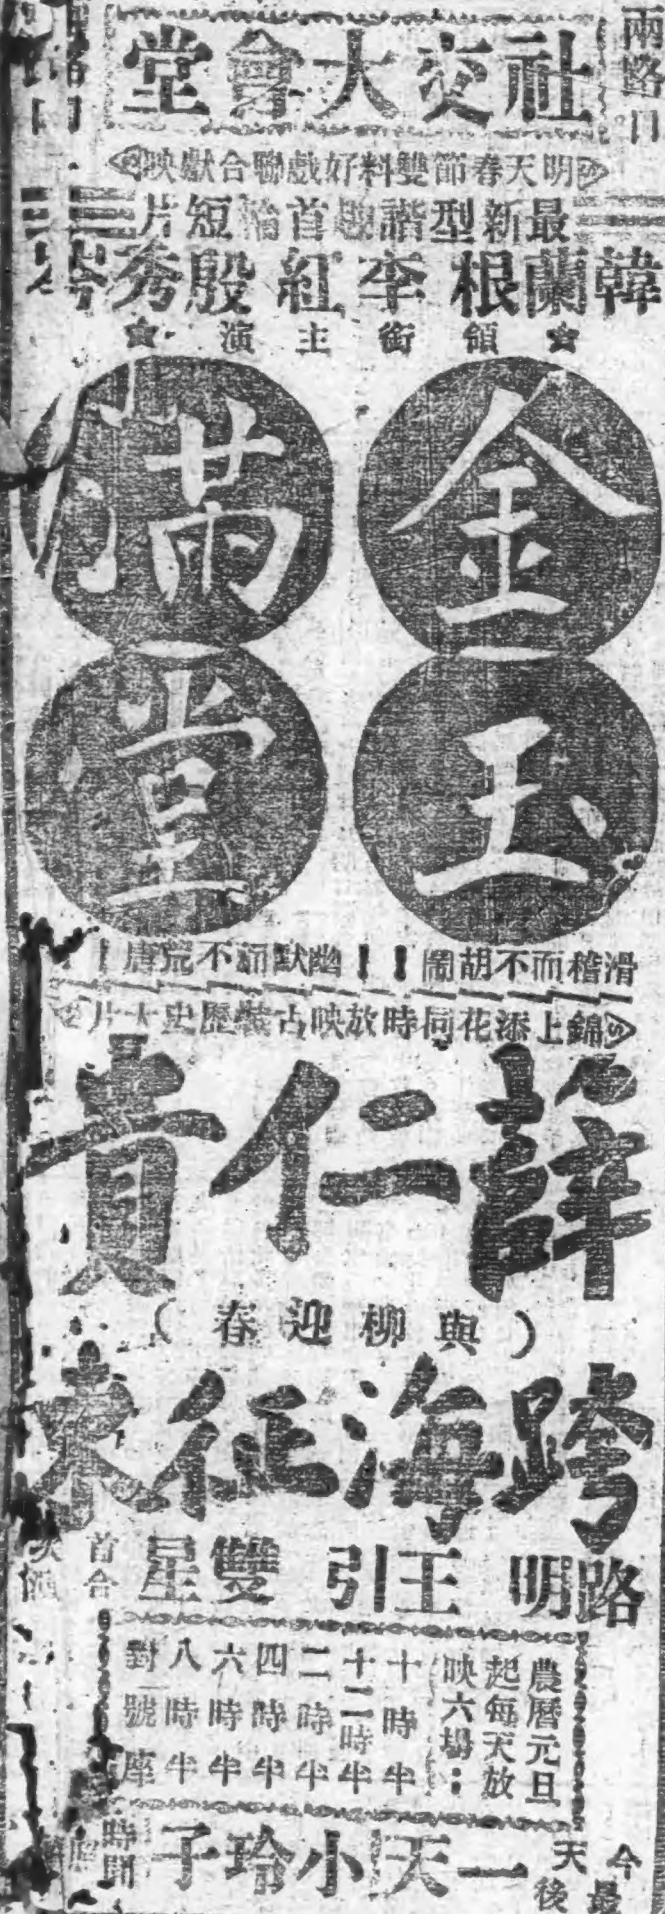 兩路口
社交大會堂
明天春節雙料好戲聯合獻映
最新型諧趣首輪短片
韓蘭根 李紅 殷秀岑
領銜主演
金玉滿堂
滑稽而不胡鬧!!幽默而不荒唐!!
錦上添花同時放映古裝歷史大片
薛仁貴
(與柳迎春)
跨海征東
路明 王引 雙星
首 合
農曆元旦
起每天放
映六場:
十時半
十二時半
二時半
四時半
六時半
八時半
對號座
今天最後一天
小玲子
時間